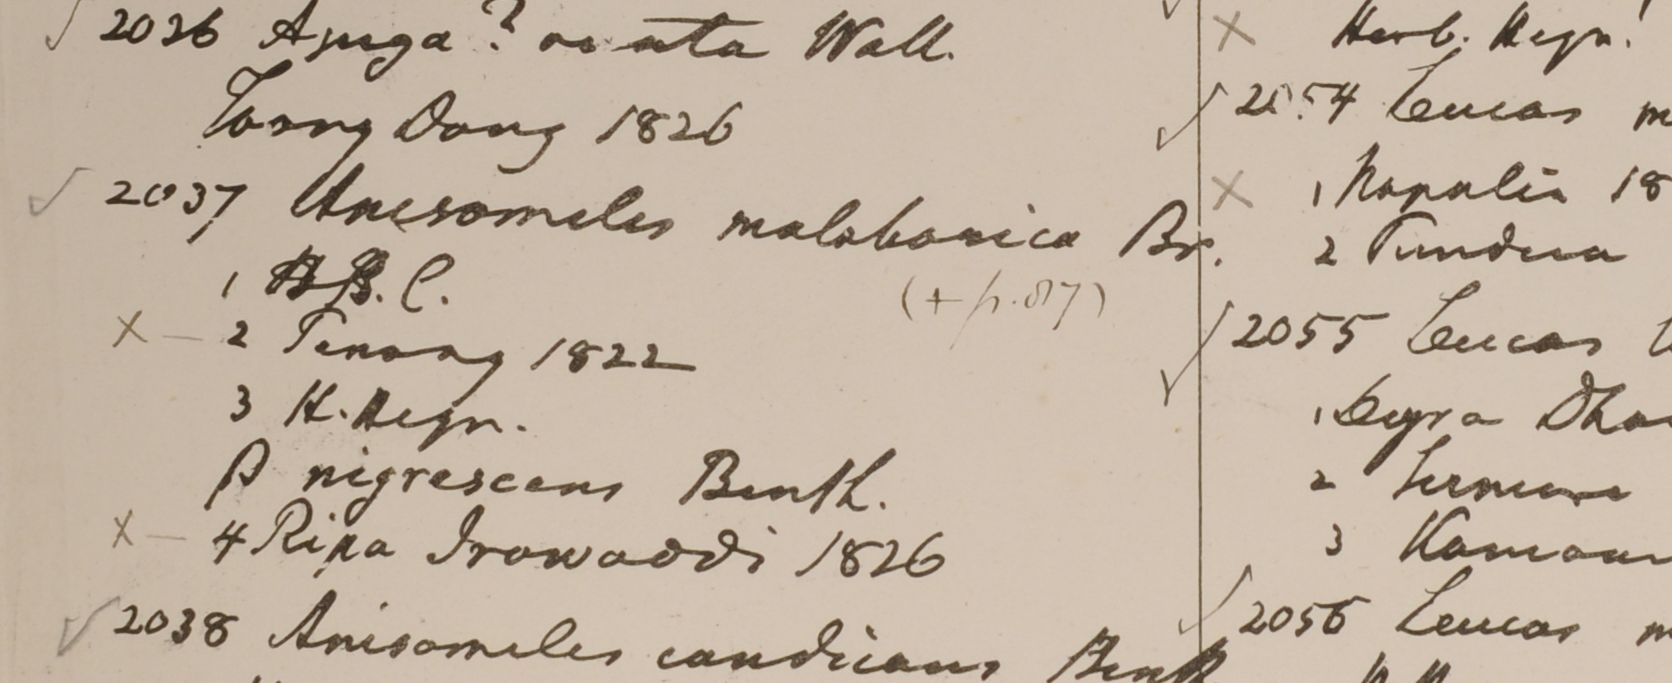 ✓ 2036 Ajuga? Wall.
Taong Dong 1826
✓ 2037 Anisomeles malabarica Br.
1 H.B.C.
(+ p. 87)
X – 2 Penang 1822
3 H. Heyn.
β nigrescens Benth.
X – 4 Ripa Irawaddi 1826
✓ 2038 Anisomeles candicans Benth
X Herb. Heyn!
✓ 2054 Leucas m
X 1 Napalia 18
2 Tundua
✓ 2055 Leucas
1 Deyra Dho
2 Sirmore
3 Kamaon
✓ 2056 Leucas m